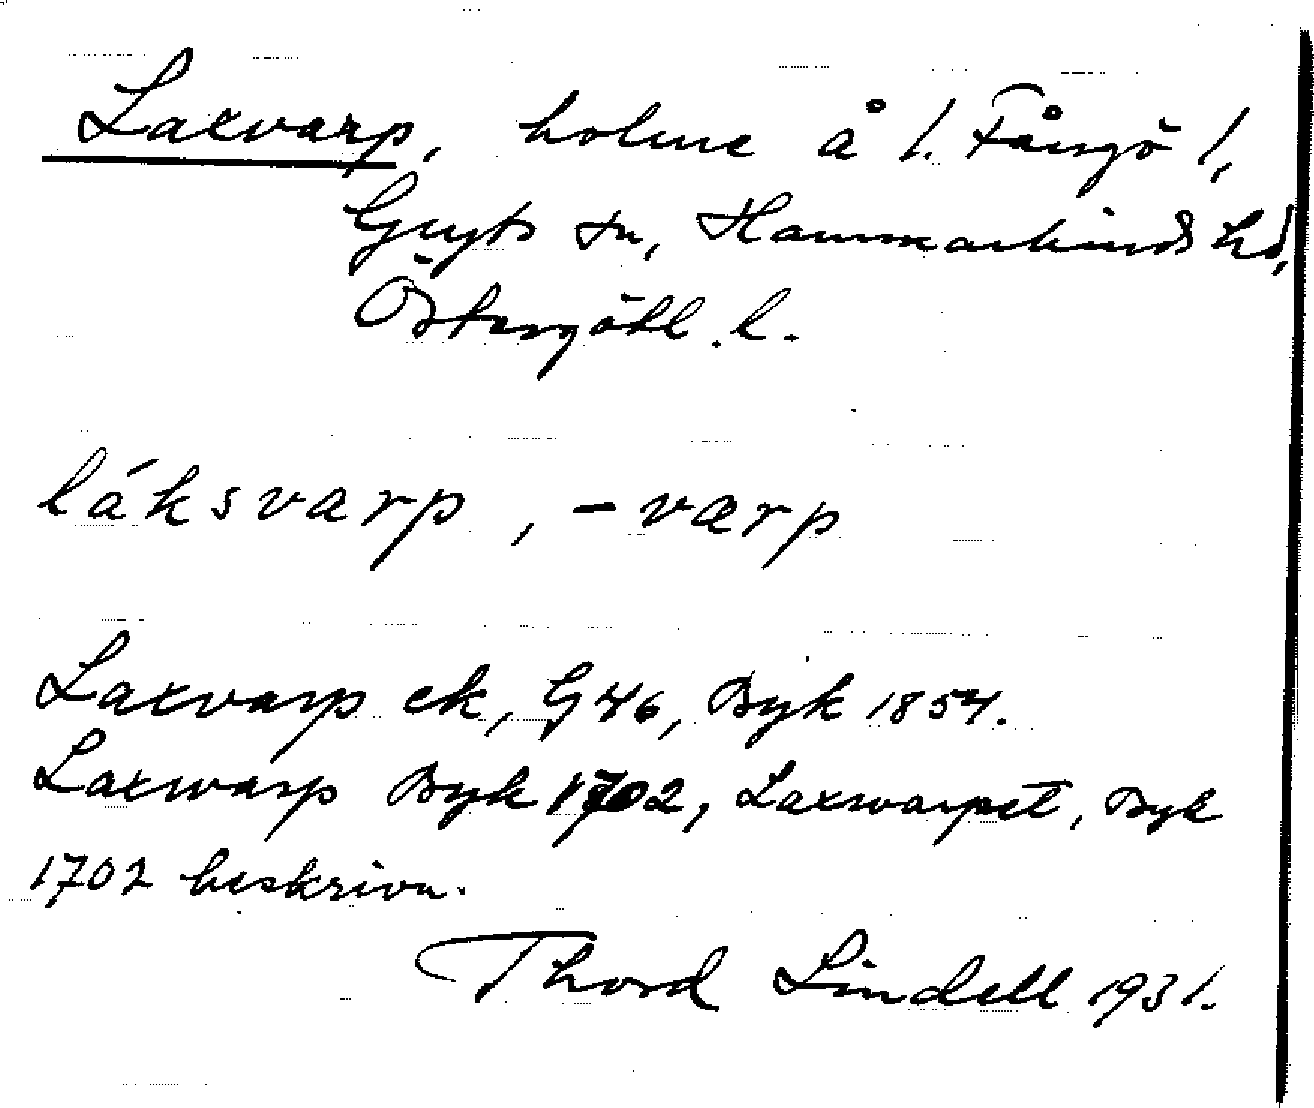 Laxvarp, holme å 1. Fångö 1,
Gryts sn, Hammarkinds hd,
Östergötl. l.
láksvarp, -værp
Laxvarp ek, G 46, Byk 1854.
Laxwarp Byk 1702, Laxwarpet, Byk
1702 beskrivn.
Thord Lindell 1931.